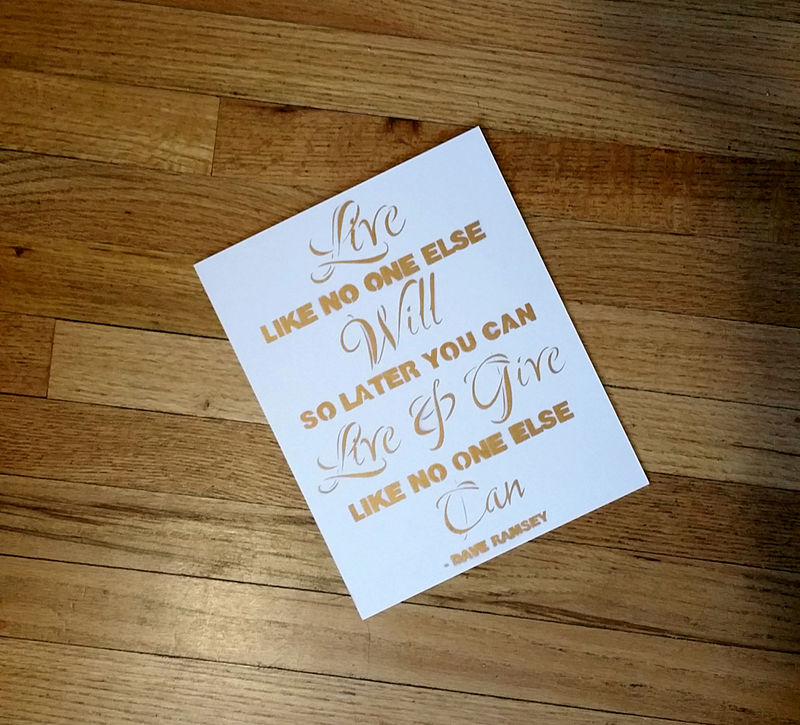 Live
LIKE NO ONE ELSE
Will
SO LATER YOU CAN
Live & Give
LIKE NO ONE ELSE
Can
- DAVE RAMSEY